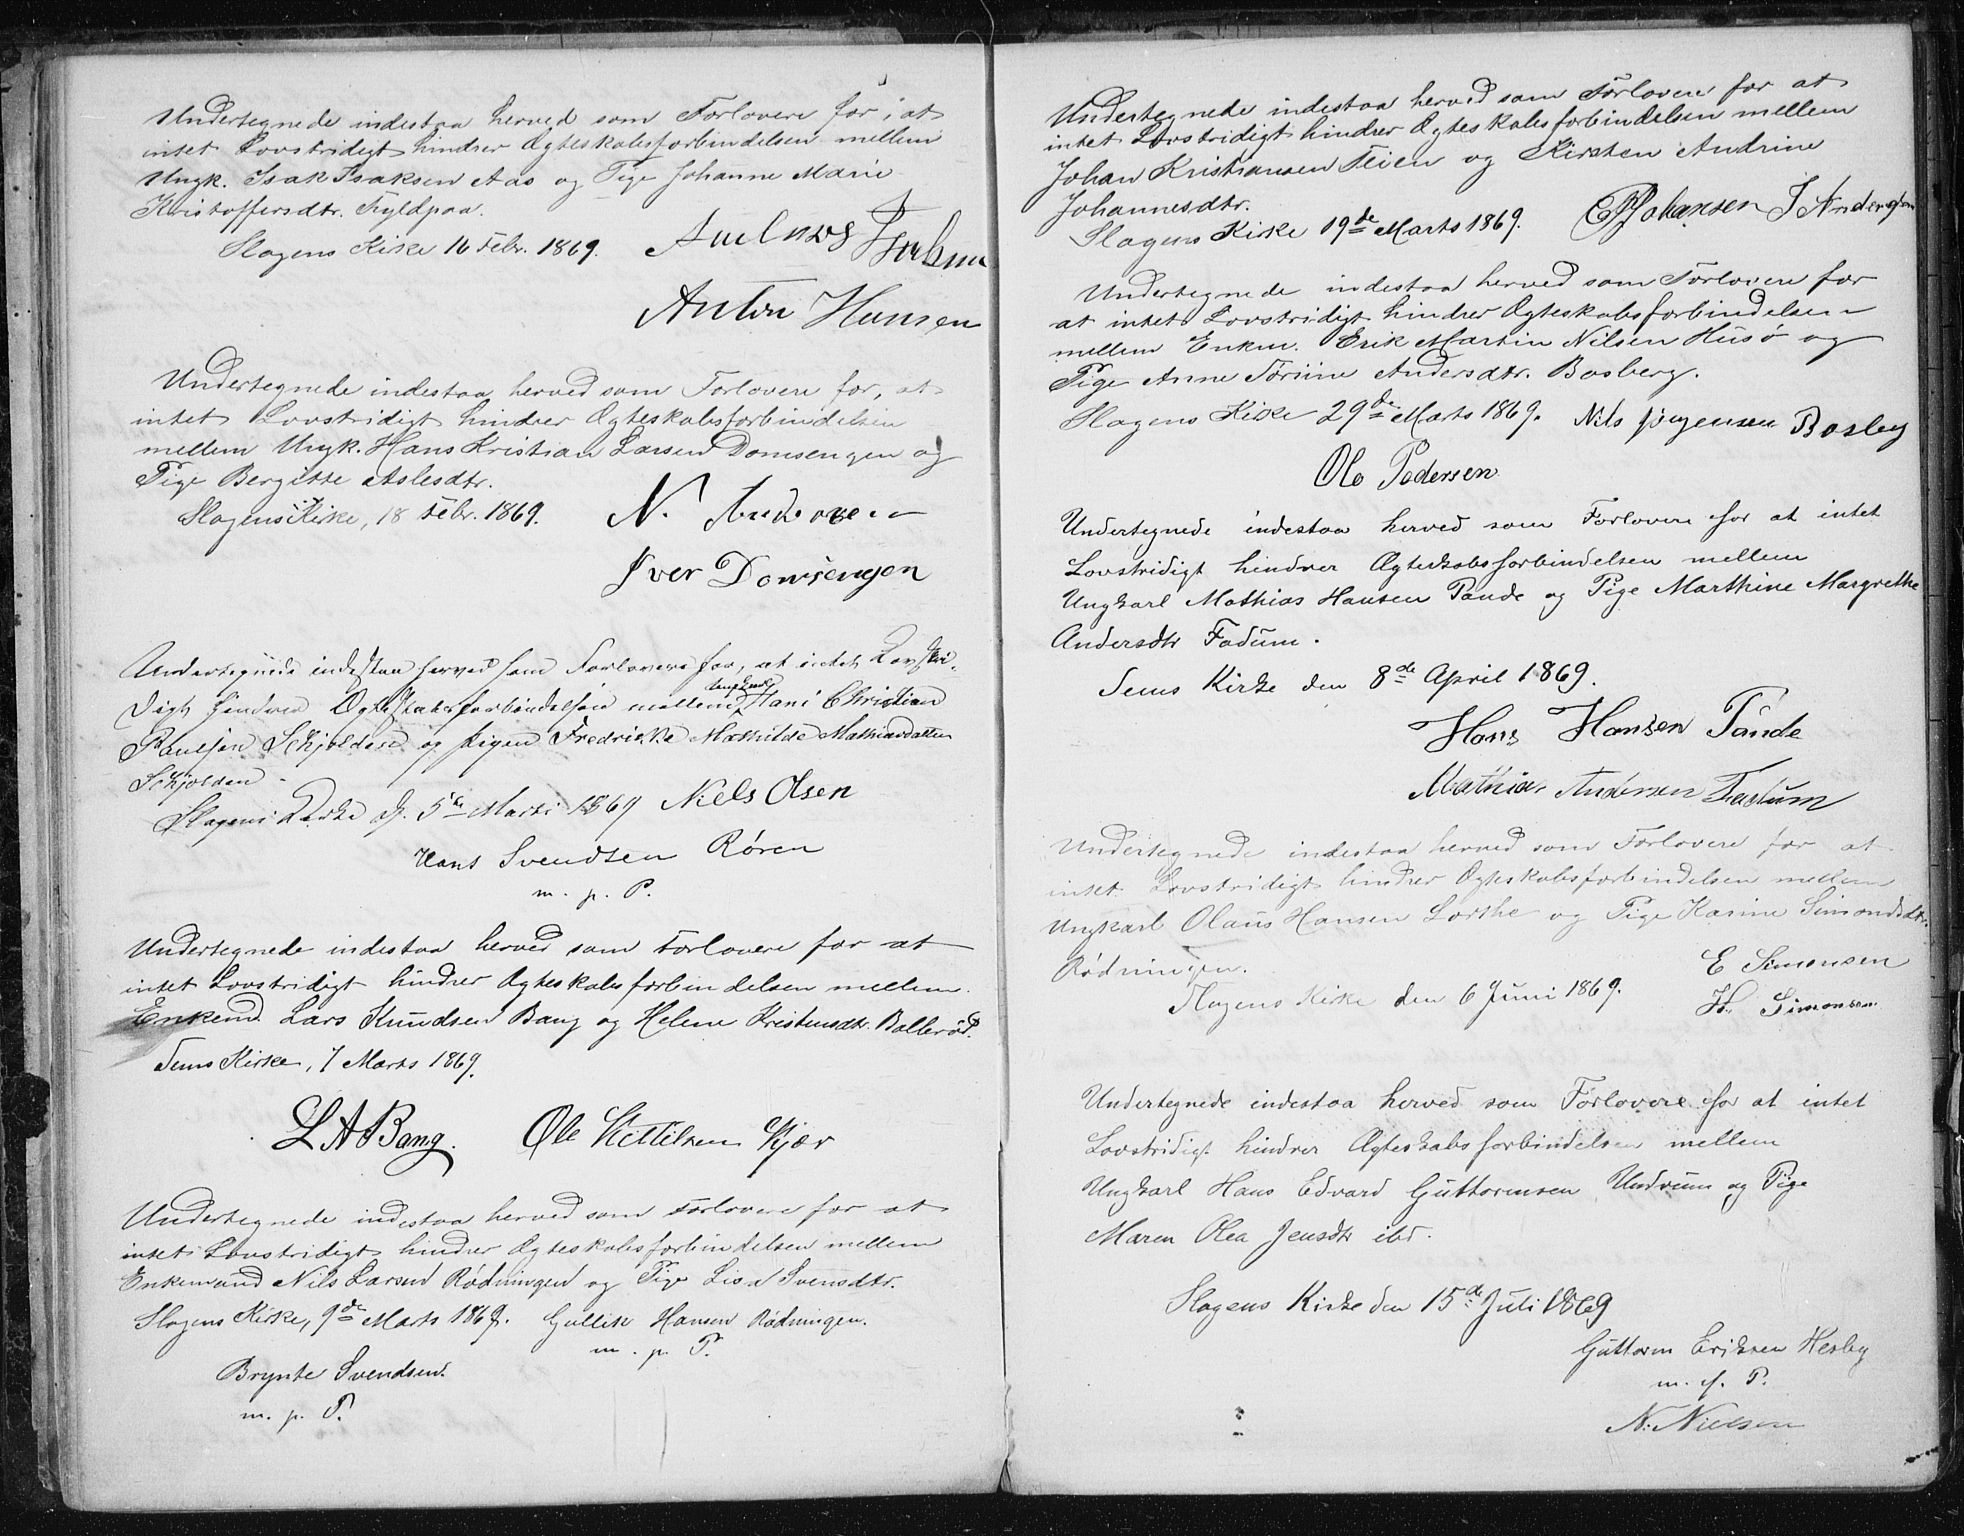 Undertegnede indestaa herved som Forlovere for, at
intet Lovstridigt hindrer Ægteskabsforbindelsen mellem
Ungk. Isak Isaksen Aas og Pige Johanne Marie
Kristoffersdtr. Fyldpaa.
Slagens Kirke 16 Febr. 1869.
Anton Hansen
Undertegnede indestaa herved som Forlovere for, at
intet Lovstridigt hindrer Ægteskabsforbindelsen
mellem Ungk. Hans Kristian Larsen Domsengen og
Pige Bergitte Aslesdtr.
Slagens Kirke, 18 Febr. 1869. N. Andersen
Iver Domsengen
Undertegnede indestaa herved som Forlovere for, at intet Lovstri-
digt hindrer Ægteskabsforbindelsen mellem Ungkarl Hans Christian
Paulsen Schjolden og Pigen Fredrikke Mathilde Mathiasdatter
Schjolden
Slagens Kirke d. 5te Marts 1869 Niels Olsen
Hans Svendsen Røren
m. p. P.
Undertegnede indestaa herved som Forlovere for at
intet Lovstridigt hindrer Ægteskabsforbindelsen mellem
Enkemd. Lars Knudsen Bang og Helene Kristensdtr. Bollerød.
Sems Kirke, 7 Marts 1869.
L A Bang. Ole Kittilsen Kjær
Undertegnede indestaa herved som Forlovere for at
intet Lovstridigt hindrer Ægteskabsforbindelsen mellem
Enkemand Nils Larsen Rødningen og Pige Lisa Svensdtr.
Slagens Kirke, 9de Marts 1869. Gullik Hansen Rødningen.
m. p. P.
Brynte Svendsen.
m. p. P.
Undertegnede indestaa herved som Forlovere for at
intet Lovstridigt hindrer Ægteskabsforbindelsen mellem
Johan Kristiansen Feien og Kirsten Andrine
Johannesdtr.
Slagens Kirke 19de Marts 1869. Johansen J Anderssen
Undertegnede indestaa herved som Forlovere for
at intet Lovstridigt hindrer Ægteskabsforbindelsen
mellem Enkm. Erik Martin Nilsen Husø og
Pige Anne Torine Andersdtr. Basberg.
Slagens Kirke 29de Marts 1869. Nils Jørgensen Basberg
Ole Pedersen
Undertegnede indestaa herved som Forlovere for at intet
Lovstridigt hindrer Ægteskabsforbindelsen mellem
Ungkarl Mathias Hansen Tande og Pige Marthine Margrethe
Andersdtr Fadum.
Sems Kirke den 8de April 1869.
Hans Hansen Tande
Mathias Andersen Fadum
Undertegnede indestaa herved som Forlovere for at
intet Lovstridigt hindrer Ægteskabsforbindelsen mellem
Ungkarl Olaus Hansen Lorthe og Pige Karine Simonsdtr.
Rødningen. E Simonsen
Slagens Kirke den 6 Juni 1869. H. Simonsen
Undertegnede indestaa herved som Forlovere for at intet
Lovstridigt hindrer Ægteskabsforbindelsen mellem
Ungkarl Hans Edvard Guttormsen Undrum og Pige
Maren Olea Jensdtr ibd.
Slagens Kirke den 15de Juli 1869
Guttorm Eriksen Hesby
m. p. P.
N. Nielsen